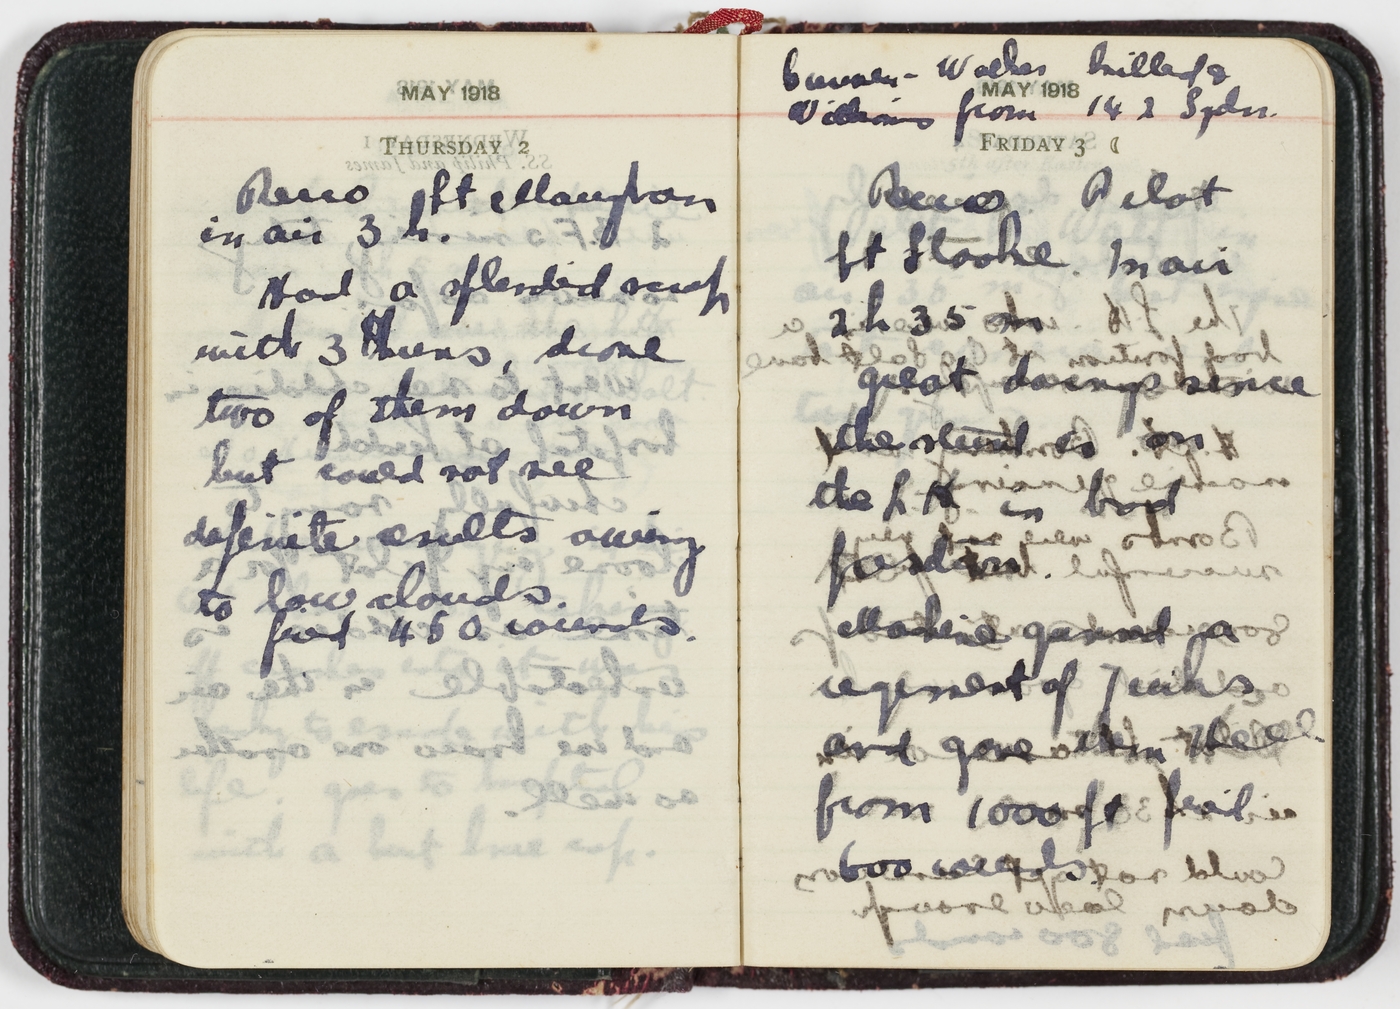 MAY 1918
THURSDAY 2
Recco Lt Maughan
in air 3 h.
Had a splendid scrap
with 3 Huns, drove
two of them down
but could not see
definite results owing
to low clouds.
fired 450 rounds.
Walker
Williams from 142 Sqdn.
MAY 1918
FRIDAY 3
Recco. Pilot
Lt Stooke. In air
2 h 35 m
great doings since
the stunt is on
the L.H. in bad
position.
Machine gunned a
regiment of Turks
and gave them Hell
from 1000 ft fired
600 rounds.